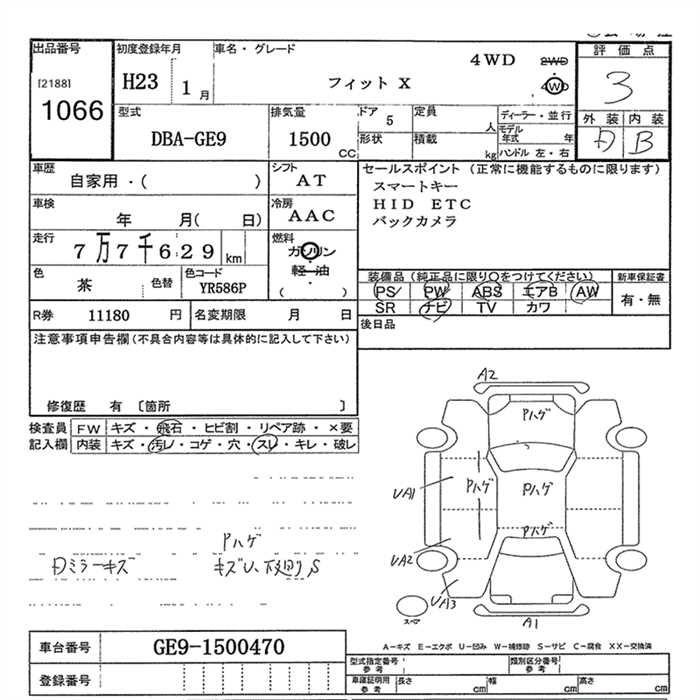 出品番号 初度登録年月 車名・グレード 評価点
[2188] 1066
H23 1月
フィット X
4WD 2WD 4WD
3
外装 内装
B
型式 DBA-GE9
排気量 1500 CC
ドア 5
定員 人
形状 積載 kg
ディーラー・並行
モデル年式 年
ハンドル 左・右
車歴 自家用・( )
シフト AT
セールスポイント (正常に機能するものに限ります)
スマートキー
HID ETC
バックカメラ
車検 年 月( 日)
冷房 AAC
走行 7万7千629 km
燃料 ガソリン・軽油 ( )
色 茶 色替
色コード YR586P
装備品 (純正品に限り○をつけてください) 新車保証書
PS PW ABS エアB AW 有・無
SR ナビ TV カワ
R券 11180 円 名変期限 月 日
後日品
注意事項申告欄(不具合内容等は具体的に記入して下さい)
修復歴 有 〔箇所 〕
検査員 FW キズ・飛石・ヒビ割・リペア跡・×要
記入欄 内装 キズ・汚レ・コゲ・穴・スレ・キレ・破レ
A2
Pハゲ
UA1 Pハゲ Pハゲ
Pハゲ
UA2
UA3
スペア
A1
Pハゲ
ミラーキズ キズU、下廻りS
車台番号 GE9-1500470
登録番号
A-キズ E-エクボ U-凹み W-補修跡 S-サビ C-腐食 XX-交換済
型式指定番号 参考 類別区分番号 参考
車庫証明用 参考 長さ cm 幅 cm 高さ cm